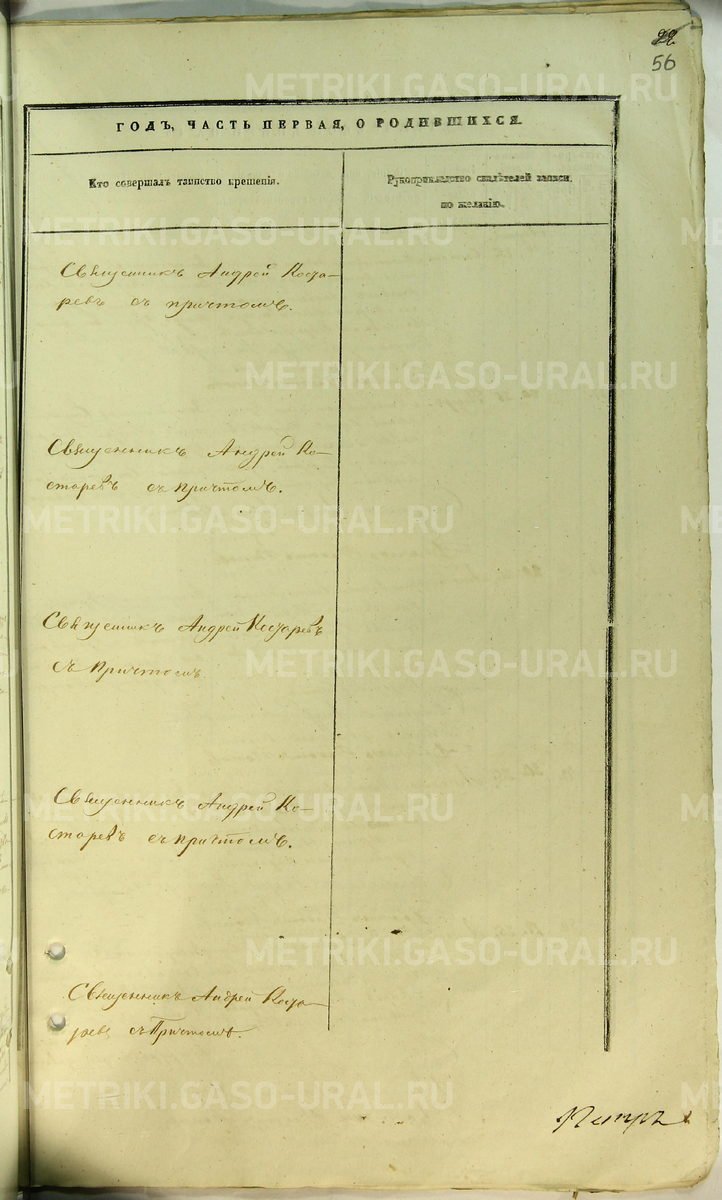 56
ГОДЪ, ЧАСТЬ ПЕРВАЯ, О РОДИВШИХСЯ.
Кто совершалъ таинство крещенія.
Рукоприкладство свидѣтелей записи
по желанію.
Священникъ Андрей Коста-
ревъ съ причтомъ.
Священникъ Андрей Ко-
старевъ съ причтомъ.
Священникъ Андрей Костаревъ
съ Причтомъ
Священникъ Андрей Ко-
старевъ съ причтомъ.
Священникъ Андрей Коста-
ревъ съ Причтомъ.
METRIKI.GASO-URAL.RU
METRIKI.GASO-URAL.RU
METRIKI.GASO-URAL.RU
METRIKI.GASO-URAL.RU
METRIKI.GASO-URAL.RU
METRIKI.GASO-URAL.RU
METRIKI.GASO-URAL.RU
METRIKI.GASO-URAL.RU